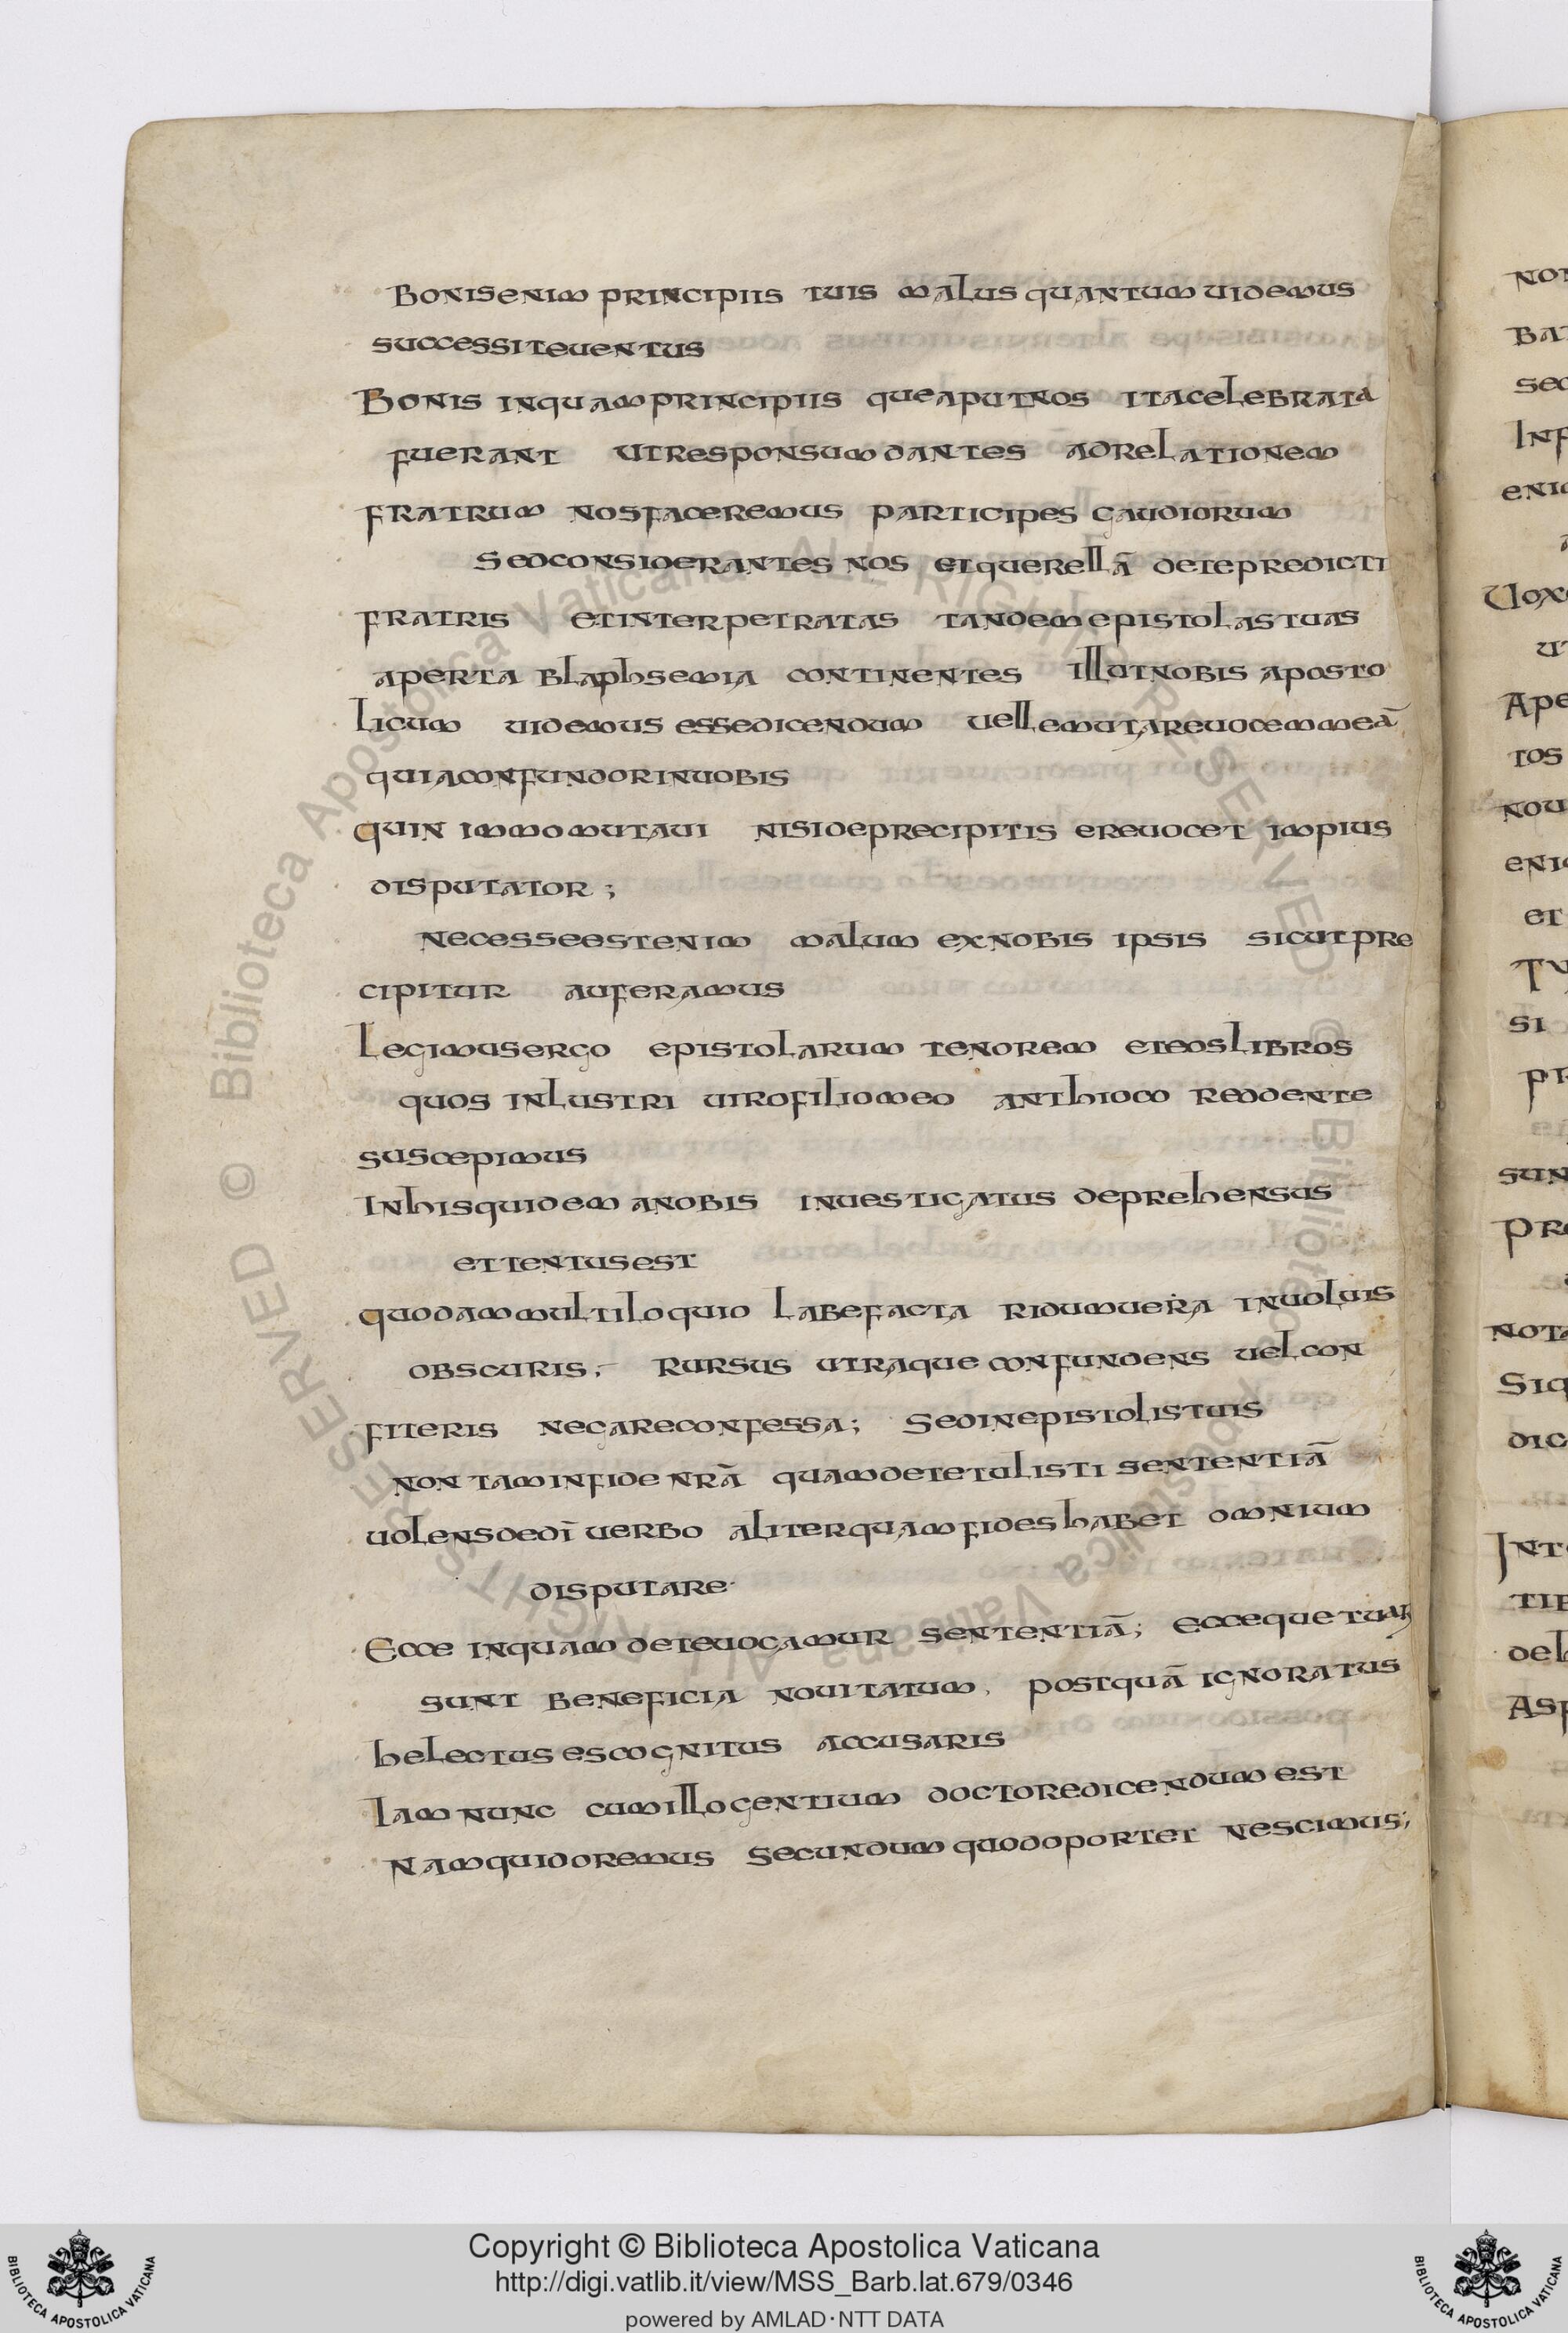 Bonisenim principiis tuis malus quantum uidemus
successiteuentus
Bonis inquamprincipiis queaputnos itacelebrata
fuerant utresponsumdantes adrelationem
fratrum nosfaceremus participes gaudiorum
Sedconsiderantes nos etquerellā detepredicti
fratris etinterpetratas tandemepistolastuas
aperta blaphsemia continentes illutnobis aposto
licum uidemus essedicendum uellemutareuocemmeā
quiaconfundorinuobis
quin immomutaui nisideprecipitis ereuocet impius
disputator;
Necesseestenim malum exnobis ipsis sicutpre
cipitur auferamus
Legimusergo epistolarum tenorem eteoslibros
quos inlustri uirofiliomeo anthioco reddente
suscepimus
Inhisquidem anobis inuestigatus deprehensus
ettentusest
quodammultiloquio labefacta ridumuera inuoluis
obscuris; rursus utraque confundens uelcon
fiteris negareconfessa; Sedinepistolistuis
non taminfide nrā quamdetetulisti sententiā
uolensdedī uerbo aliterquamfideshabet omnium
disputare·
Ecce inquam deteuocamur sententiā; eccequetuar
sunt beneficia nouitatum, postquā ignoratus
helectusescognitus accusaris
Iam nunc cumillogentium doctoredicendumest
Namquidoremus secundum quodoportet nescimus;
Copyright © Biblioteca Apostolica Vaticana
http://digi.vatlib.it/view/MSS_Barb.lat.679/0346
powered by AMLAD·NTT DATA
BIBLIOTECA APOSTOLICA VATICANA
BIBLIOTECA APOSTOLICA VATICANA